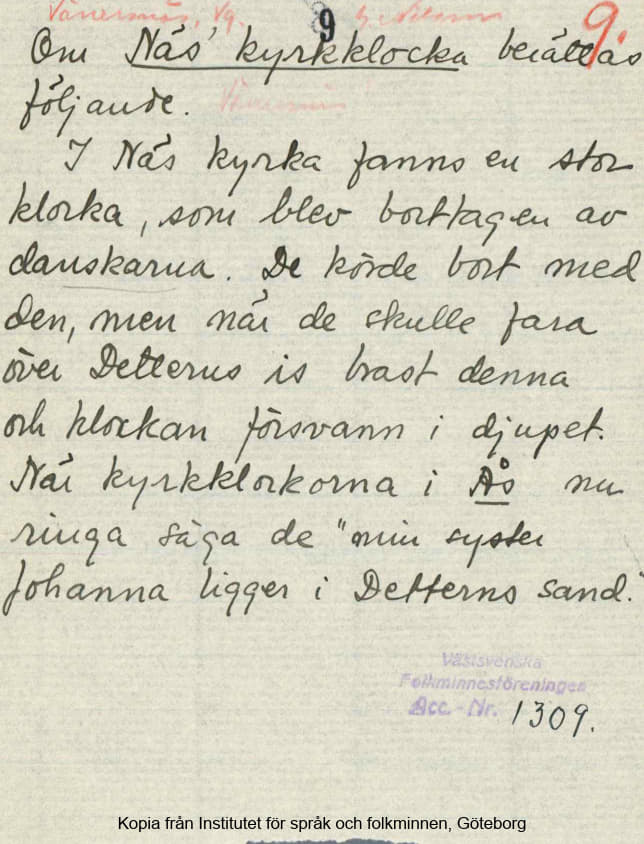 Vänersnäs, Vg.
9
9.
Om Näs' kyrkklocka berättas
följande.
Vänersnäs
I Näs kyrka fanns en stor
klocka, som blev borttagen av
danskarna. De körde bort med
den, men när de skulle fara
över Detterns is brast denna
och klockan försvann i djupet.
När kyrkklockorna i Ås nu
ringa säga de "min syster
Johanna ligger i Detterns sand."
Västsvenska
Folkminnesföreningen
Acc.-Nr. 1309.
Kopia från Institutet för språk och folkminnen, Göteborg